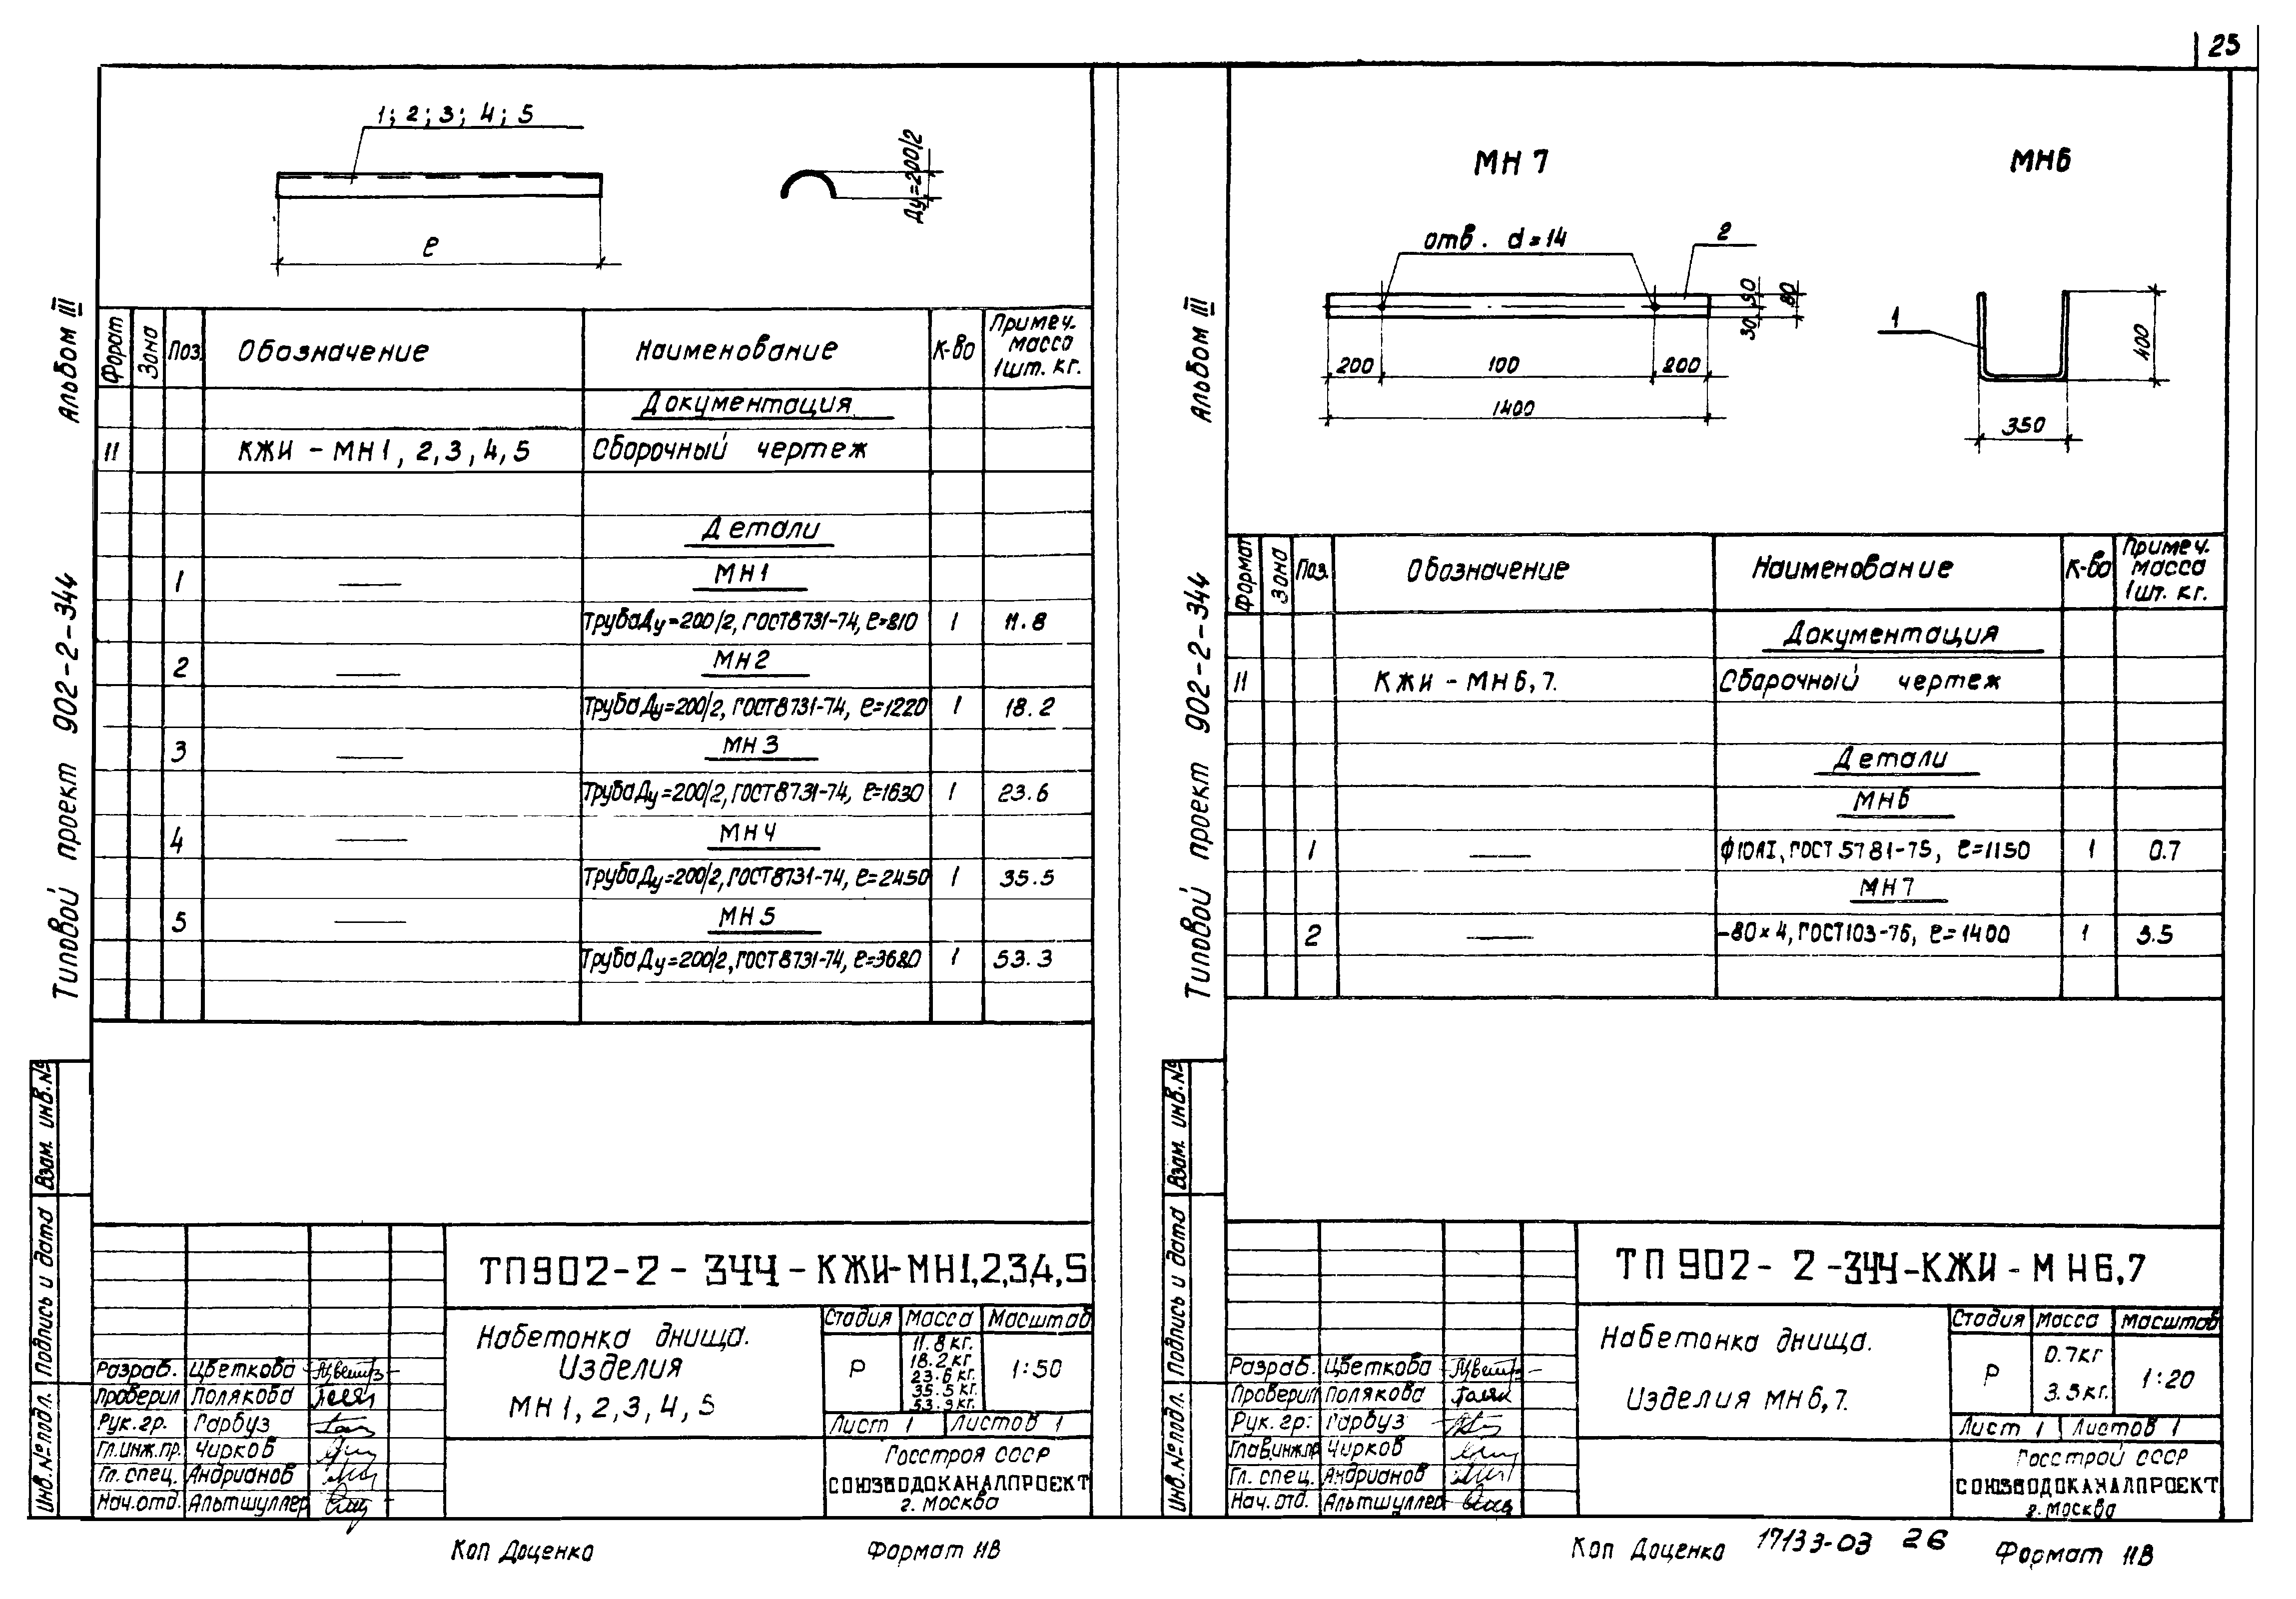 25
1; 2; 3; 4; 5
Ду=200/2
ℓ
Альбом III
Типовой проект 902-2-344
Форат Зона Поз. Обозначение Наименование К-во Примеч. масса 1шт. кг.
Документация
11 КЖИ - МН1, 2,3,4,5 Сборочный чертеж
Детали
1 МН1
Труба Ду=200/2, ГОСТ 8731-74, ℓ=810 1 11.8
2 МН2
Труба Ду=200/2, ГОСТ 8731-74, ℓ=1220 1 18.2
3 МН3
Труба Ду=200/2, ГОСТ 8731-74, ℓ=1630 1 23.6
4 МН4
Труба Ду=200/2, ГОСТ 8731-74, ℓ=2450 1 35.5
5 МН5
Труба Ду=200/2, ГОСТ 8731-74, ℓ=3680 1 53.3
Взам. инв.№
Подпись и дата
Инв.№ подл.
ТП902-2-344-КЖИ-МН1,2,3,4,5
Набетонка днища.
Изделия
МН1, 2, 3, 4, 5
Стадия Масса Масштаб
Р
11.8 кг.
18.2 кг
23.6 кг
35.5 кг.
53.3 кг.
1:50
Лист 1 Листов 1
Госстроя СССР
СОЮЗВОДОКАНАЛПРОЕКТ
г. Москва
Разраб. Цветкова
Проверил Полякова
Рук. гр. Гарбуз
Гл.инж.пр. Чирков
Гл. спец. Андрианов
Нач.отд. Альтшуллер
Коп Доценко Формат 11В
МН 7
МН6
отв. d=14
2
50
30
80
200 100 200
1400
1
400
350
Альбом III
Типовой проект 902-2-344
Формат Зона Поз. Обозначение Наименование К-во Примеч. масса 1шт. кг.
Документация
11 КЖИ - МН6,7. Сборочный чертеж
Детали
МН6
1 ф10АI, ГОСТ 5781-75, ℓ=1150 1 0.7
МН7
2 -80×4, ГОСТ103-76, ℓ=1400 1 3.5
Взам. инв.№
Подпись и дата
Инв.№ подл.
ТП902-2-344-КЖИ-МН6,7
Набетонка днища.
Изделия МН6,7.
Стадия Масса Масштаб
Р
0.7кг
3.5кг.
1:20
Лист 1 Листов 1
Госстрой СССР
СОЮЗВОДОКАНАЛПРОЕКТ
г. Москва
Разраб. Цветкова
Проверил Полякова
Рук. гр. Гарбуз
Глав.инж.пр Чирков
Гл. спец. Андрианов
Нач. отд. Альтшуллер
Коп Доценко 17133-03 26 Формат 11В